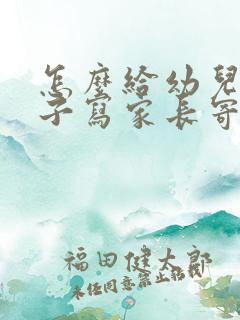 怎麼給幼兒
子寫家長寄
福田健太郎
未任同意禁止転載